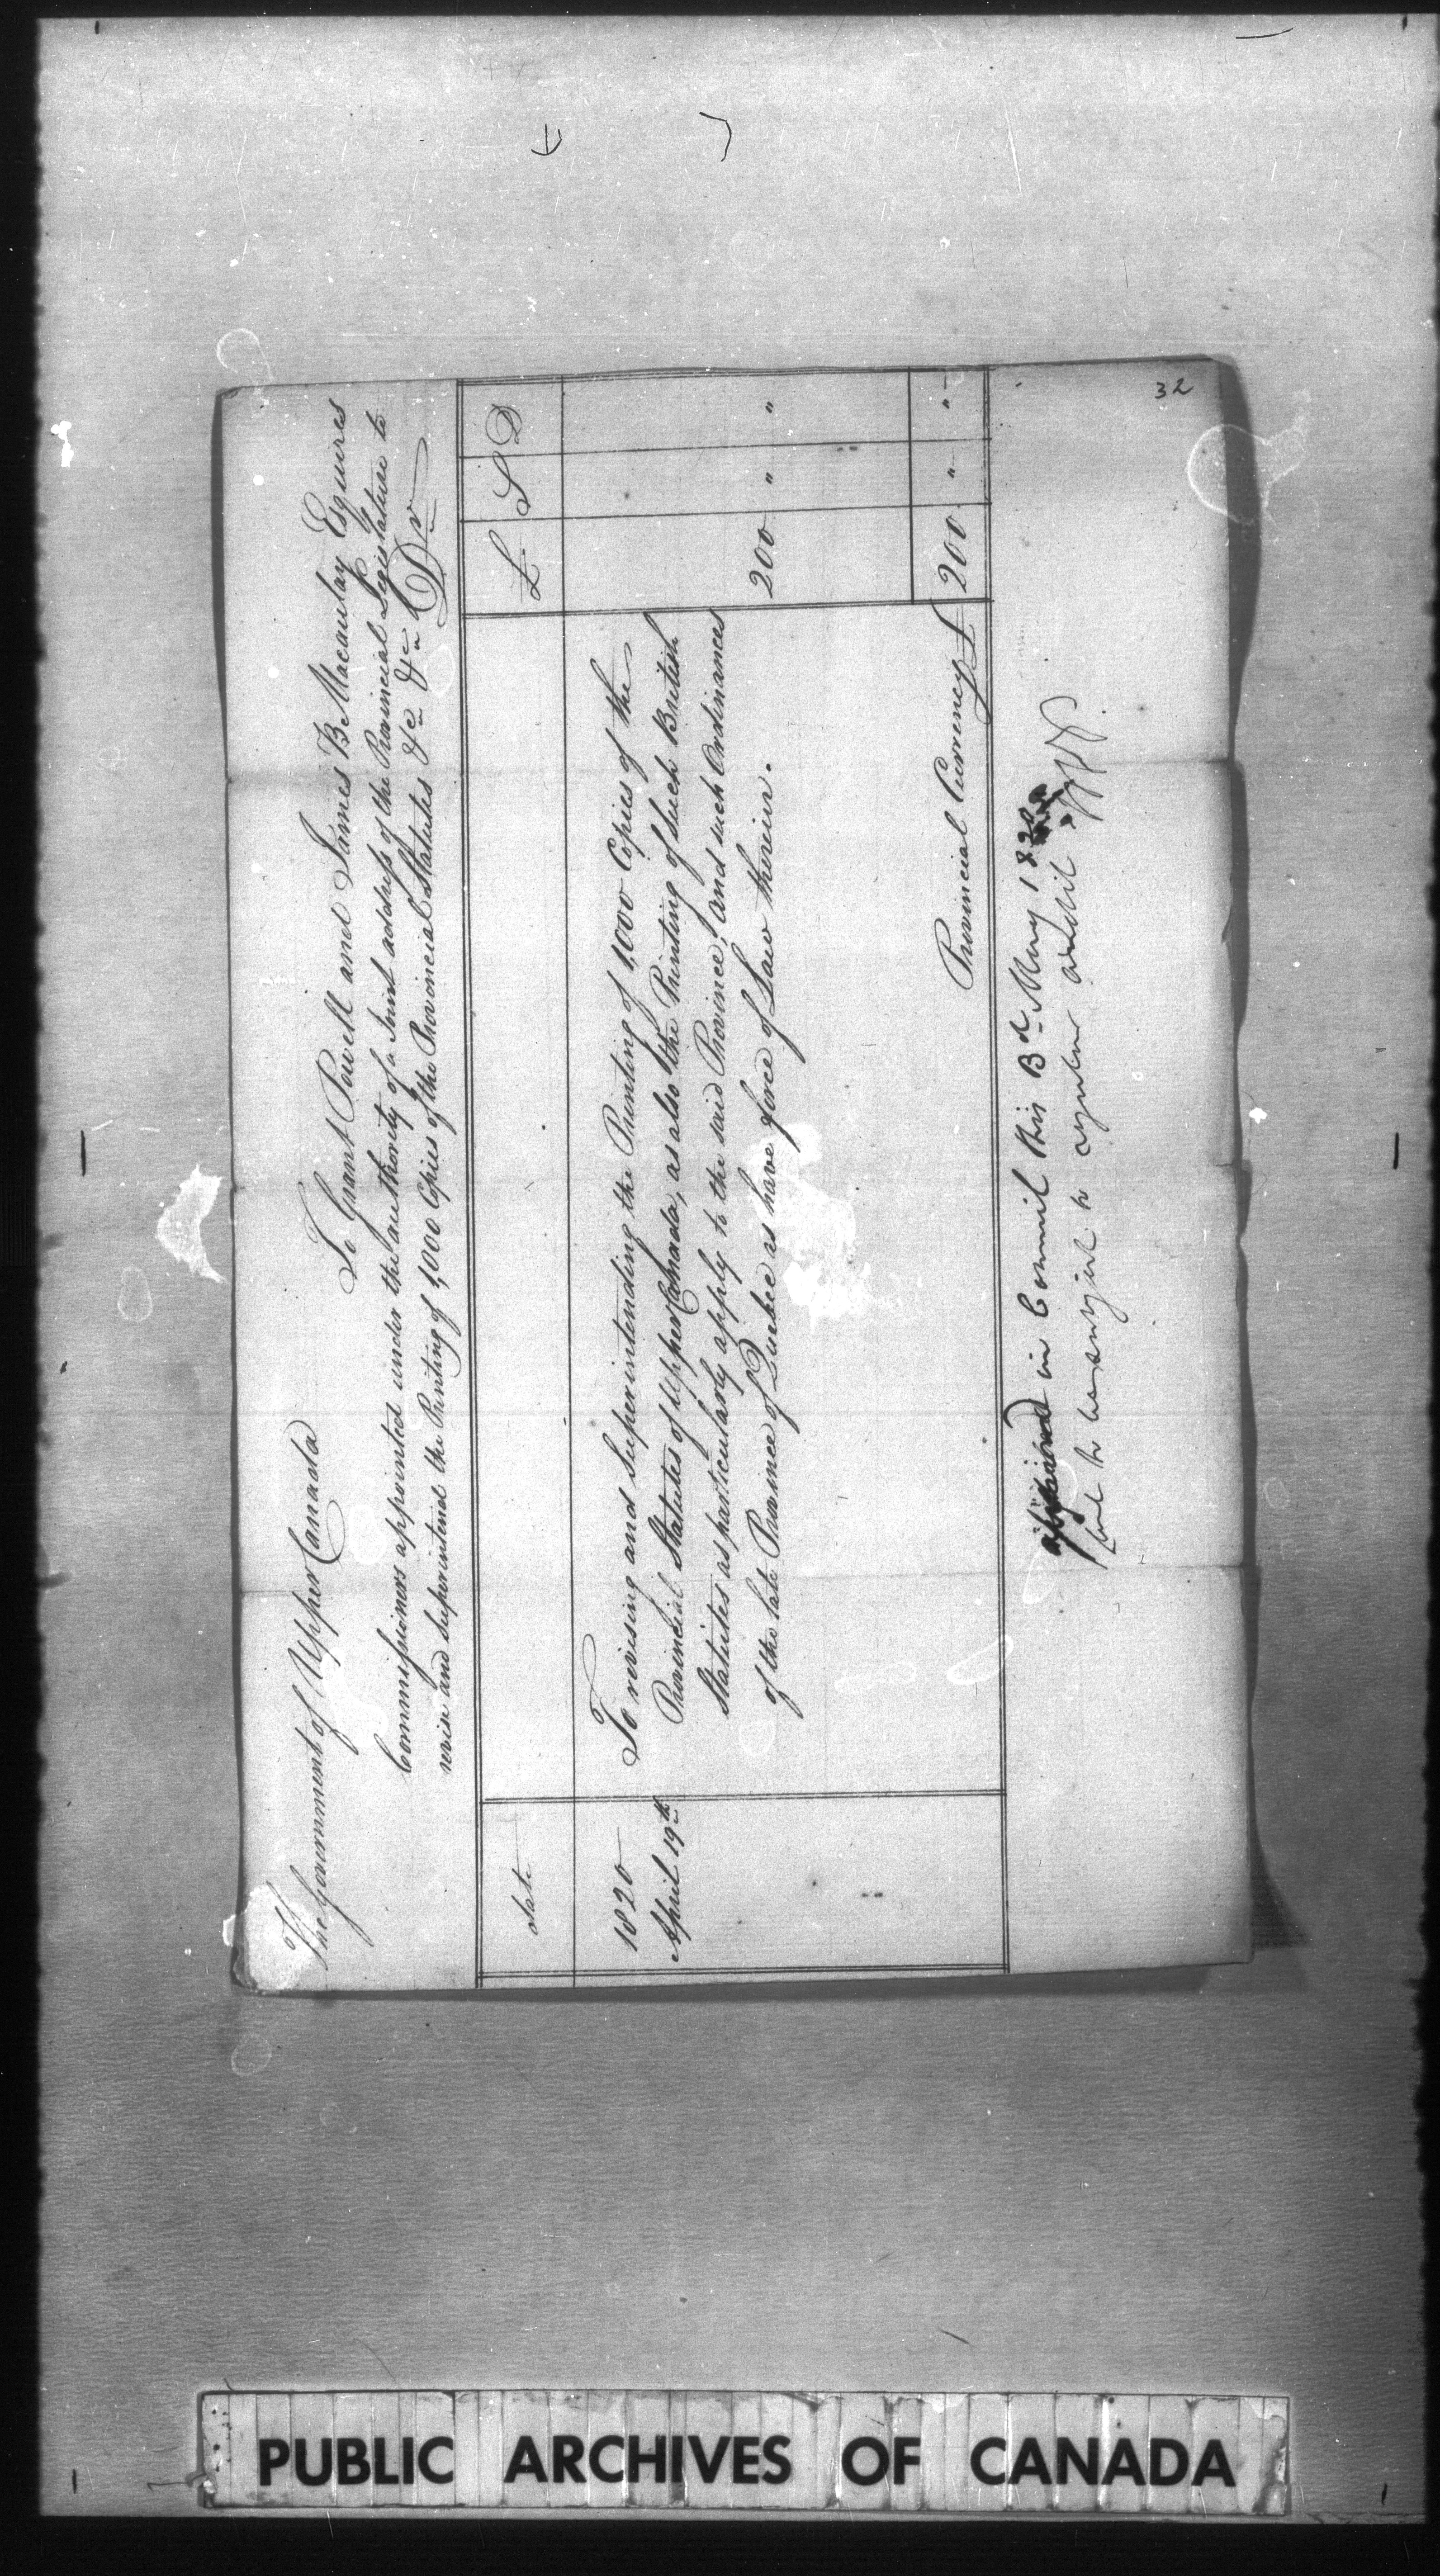 The Government of Upper Canada
To Grant Powell and James B Macaulay Esquires
Commissioners appointed under the authority of a Joint address of the Provincial Legislature to
revise and superintend the Printing of 1,000 Copies of the Provincial Statutes &c &c &c Dr
date £ S D
1820
April 19th
To revising and superintending the Printing of 1,000 Copies of the
Provincial Statutes of Upper Canada, as also the Printing of such British
Statutes as particularly apply to the said Province, and such Ordinances
of the late Province of Quebec as have force of Law therein. 200 " "
Provincial Currency £ 200 " "
in Council this 3d May 1820
audit
32
PUBLIC ARCHIVES OF CANADA